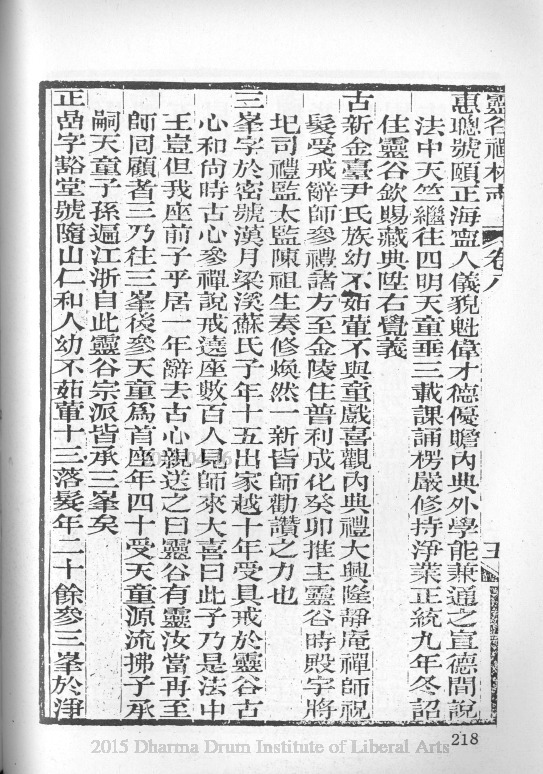 靈谷禪林志 卷八 五
惠聰號頤正海寧人儀貌魁偉才德優贍內典外學能兼通之宣德間說
法中天竺繼往四明天童垂三載課誦楞嚴修持淨業正統九年冬詔
住靈谷欽賜藏典陞右覺義
古新金臺尹氏族幼不茹葷不與童戲喜觀內典禮大興隆靜庵禪師祝
髮受戒辭師參禮諸方至金陵住普利成化癸卯推主靈谷時殿宇將
圮司禮監太監陳祖生奏修煥然一新皆師勸讚之力也
三峯字於密號漢月梁溪蘇氏子年十五出家越十年受具戒於靈谷古
心和尚時古心參禪說戒遶座數百人見師來大喜曰此子乃是法中
王豈但我座前子乎居一年辭去古心親送之曰靈谷有靈汝當再至
師回顧者三乃往三峯後參天童為首座年四十受天童源流拂子承
嗣天童子孫遍江浙自此靈谷宗派皆承三峯矣
正嵒字豁堂號隨山仁和人幼不茹葷十三落髮年二十餘參三峯於淨
218
2015 Dharma Drum Institute of Liberal Arts